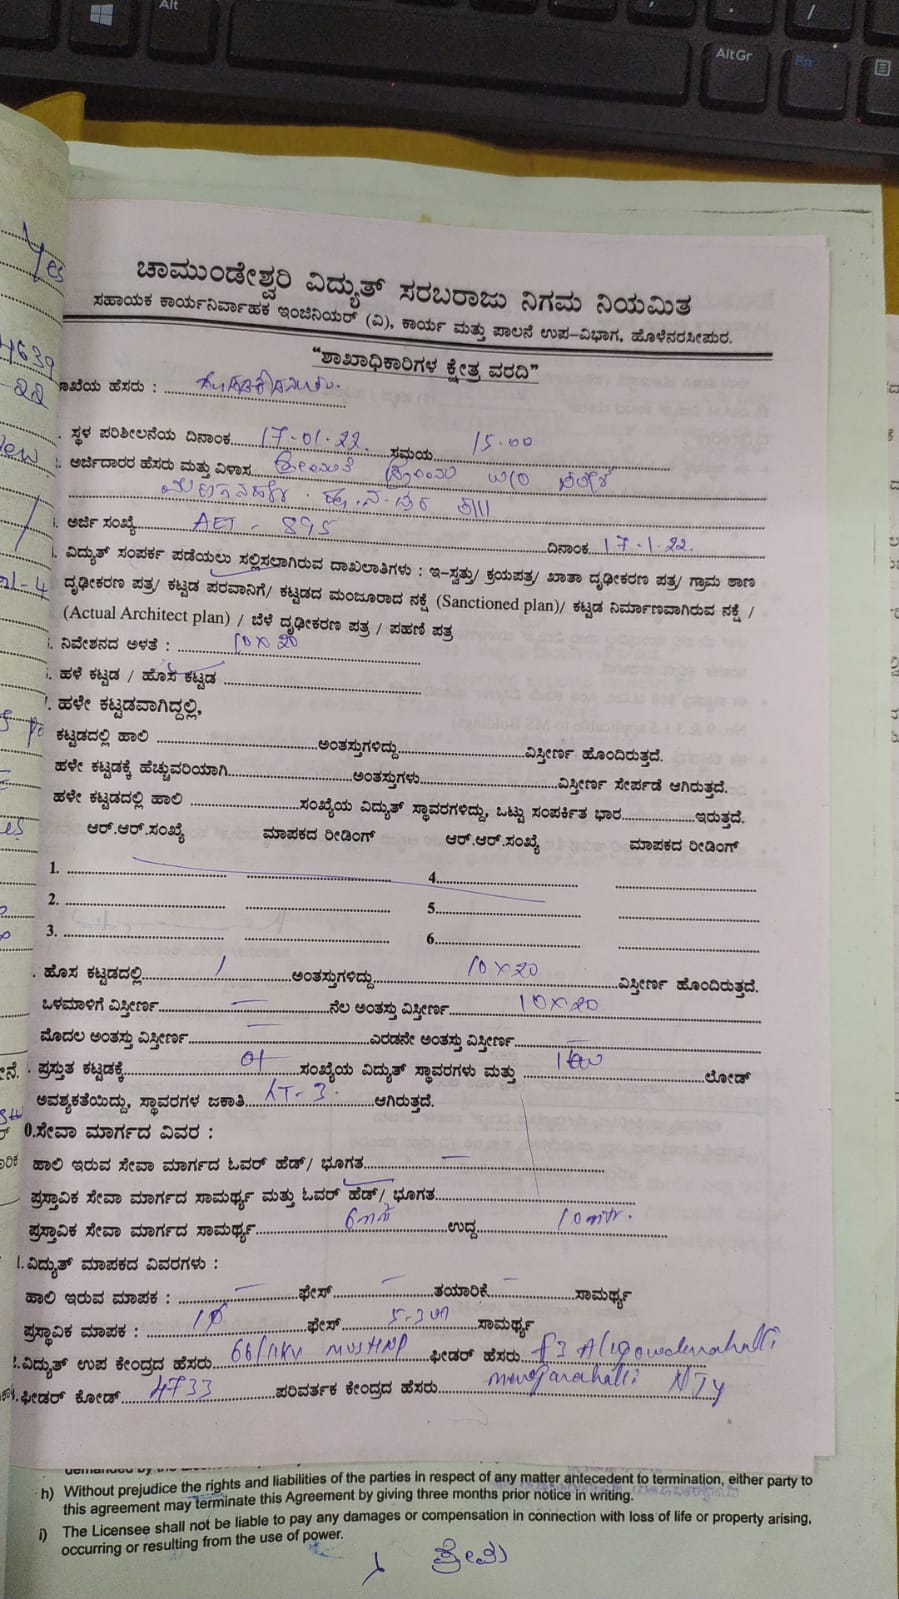 Alt
AltGr
Fn
Yes
4639
-22
New
ಚಾಮುಂಡೇಶ್ವರಿ ವಿದ್ಯುತ್ ಸರಬರಾಜು ನಿಗಮ ನಿಯಮಿತ
ಸಹಾಯಕ ಕಾರ್ಯನಿರ್ವಾಹಕ ಇಂಜಿನಿಯರ್ (ವಿ), ಕಾರ್ಯ ಮತ್ತು ಪಾಲನೆ ಉಪ-ವಿಭಾಗ, ಹೊಳೆನರಸೀಪುರ.
“ಶಾಖಾಧಿಕಾರಿಗಳ ಕ್ಷೇತ್ರ ವರದಿ”
ಾಖೆಯ ಹೆಸರು :
. ಸ್ಥಳ ಪರಿಶೀಲನೆಯ ದಿನಾಂಕ 17-01-22. ಸಮಯ 15.00
. ಅರ್ಜಿದಾರರ ಹೆಸರು ಮತ್ತು ವಿಳಾಸ ಶ್ರೀಮತಿ W/O
. ಅರ್ಜಿ ಸಂಖ್ಯೆ AET - 895 ದಿನಾಂಕ 17-1-22.
. ವಿದ್ಯುತ್ ಸಂಪರ್ಕ ಪಡೆಯಲು ಸಲ್ಲಿಸಲಾಗಿರುವ ದಾಖಲಾತಿಗಳು : ಇ-ಸ್ವತ್ತು/ ಕ್ರಯಪತ್ರ/ ಖಾತಾ ದೃಢೀಕರಣ ಪತ್ರ/ ಗ್ರಾಮ ಠಾಣ
ದೃಢೀಕರಣ ಪತ್ರ/ ಕಟ್ಟಡ ಪರವಾನಿಗೆ/ ಕಟ್ಟಡದ ಮಂಜೂರಾದ ನಕ್ಷೆ (Sanctioned plan)/ ಕಟ್ಟಡ ನಿರ್ಮಾಣವಾಗಿರುವ ನಕ್ಷೆ /
(Actual Architect plan) / ಬೆಳೆ ದೃಢೀಕರಣ ಪತ್ರ / ಪಹಣಿ ಪತ್ರ
. ನಿವೇಶನದ ಅಳತೆ : 10×20
. ಹಳೆ ಕಟ್ಟಡ / ಹೊಸ ಕಟ್ಟಡ
. ಹಳೇ ಕಟ್ಟಡವಾಗಿದ್ದಲ್ಲಿ,
ಕಟ್ಟಡದಲ್ಲಿ ಹಾಲಿ ಅಂತಸ್ತುಗಳಿದ್ದು ವಿಸ್ತೀರ್ಣ ಹೊಂದಿರುತ್ತದೆ.
ಹಳೇ ಕಟ್ಟಡಕ್ಕೆ ಹೆಚ್ಚುವರಿಯಾಗಿ ಅಂತಸ್ತುಗಳು ವಿಸ್ತೀರ್ಣ ಸೇರ್ಪಡೆ ಆಗಿರುತ್ತದೆ.
ಹಳೇ ಕಟ್ಟಡದಲ್ಲಿ ಹಾಲಿ ಸಂಖ್ಯೆಯ ವಿದ್ಯುತ್ ಸ್ಥಾವರಗಳಿದ್ದು, ಒಟ್ಟು ಸಂಪರ್ಕಿತ ಭಾರ ಇರುತ್ತದೆ.
ಆರ್.ಆರ್.ಸಂಖ್ಯೆ ಮಾಪಕದ ರೀಡಿಂಗ್ ಆರ್.ಆರ್.ಸಂಖ್ಯೆ ಮಾಪಕದ ರೀಡಿಂಗ್
1. 4.
2. 5.
3. 6.
. ಹೊಸ ಕಟ್ಟಡದಲ್ಲಿ 1 ಅಂತಸ್ತುಗಳಿದ್ದು 10×20 ವಿಸ್ತೀರ್ಣ ಹೊಂದಿರುತ್ತದೆ.
ಒಳಮಾಳಿಗೆ ವಿಸ್ತೀರ್ಣ — ನೆಲ ಅಂತಸ್ತು ವಿಸ್ತೀರ್ಣ 10×20
ಮೊದಲ ಅಂತಸ್ತು ವಿಸ್ತೀರ್ಣ — ಎರಡನೇ ಅಂತಸ್ತು ವಿಸ್ತೀರ್ಣ —
. ಪ್ರಸ್ತುತ ಕಟ್ಟಡಕ್ಕೆ 01 ಸಂಖ್ಯೆಯ ವಿದ್ಯುತ್ ಸ್ಥಾವರಗಳು ಮತ್ತು 1kw ಲೋಡ್
ಅವಶ್ಯಕತೆಯಿದ್ದು, ಸ್ಥಾವರಗಳ ಜಕಾತಿ LT-3. ಆಗಿರುತ್ತದೆ.
0.ಸೇವಾ ಮಾರ್ಗದ ವಿವರ :
ಹಾಲಿ ಇರುವ ಸೇವಾ ಮಾರ್ಗದ ಓವರ್ ಹೆಡ್/ ಭೂಗತ —
ಪ್ರಸ್ತಾವಿಕ ಸೇವಾ ಮಾರ್ಗದ ಸಾಮರ್ಥ್ಯ ಮತ್ತು ಓವರ್ ಹೆಡ್/ ಭೂಗತ
ಪ್ರಸ್ತಾವಿಕ ಸೇವಾ ಮಾರ್ಗದ ಸಾಮರ್ಥ್ಯ ಉದ್ದ 10mtr.
1.ವಿದ್ಯುತ್ ಮಾಪಕದ ವಿವರಗಳು :
ಹಾಲಿ ಇರುವ ಮಾಪಕ : — ಫೇಸ್ — ತಯಾರಿಕೆ — ಸಾಮರ್ಥ್ಯ
ಪ್ರಸ್ಥಾವಿಕ ಮಾಪಕ : 1φ ಫೇಸ್ 5-30 ಸಾಮರ್ಥ್ಯ
2.ವಿದ್ಯುತ್ ಉಪ ಕೇಂದ್ರದ ಹೆಸರು 66/11KV MUSHNP ಫೀಡರ್ ಹೆಸರು f3 Aligowdanahalli
.ಫೀಡರ್ ಕೋಡ್ 4733 ಪರಿವರ್ತಕ ಕೇಂದ್ರದ ಹೆಸರು NJY
h) Without prejudice the rights and liabilities of the parties in respect of any matter antecedent to termination, either party to
this agreement may terminate this Agreement by giving three months prior notice in writing.
i) The Licensee shall not be liable to pay any damages or compensation in connection with loss of life or property arising,
occurring or resulting from the use of power.
ಪ್ರೇಮ